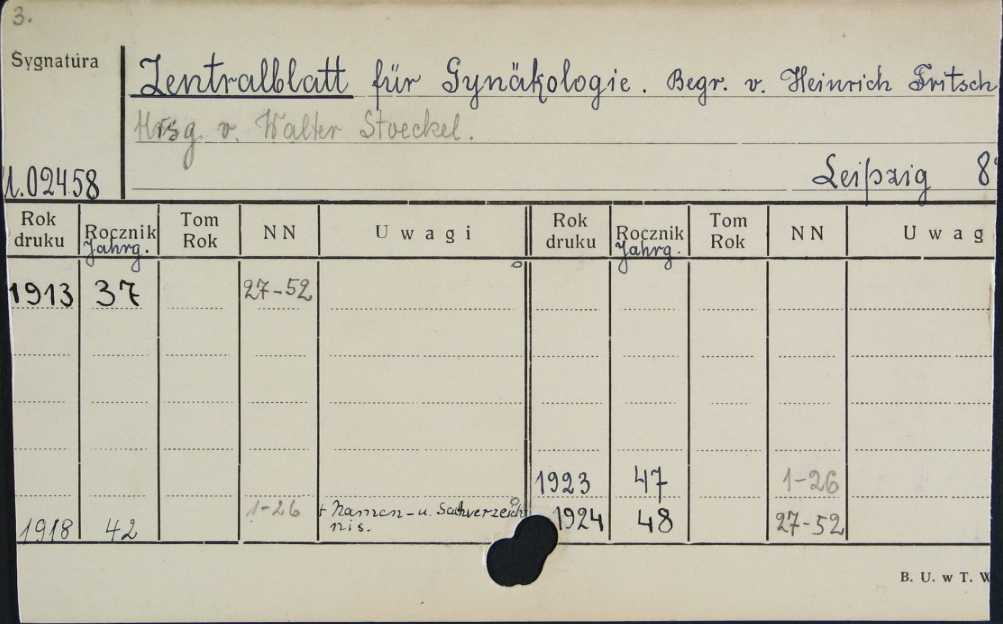 3.
Sygnatura
Zentralblatt für Gynäkologie. Begr. v. Heinrich Fritsch
Hrsg. v. Walter Stoeckel.
U.02458
Leipzig 8°
Rok druku Rocznik Jahrg. Tom Rok NN Uwagi Rok druku Rocznik Jahrg. Tom Rok NN Uwag
1913 37 27-52
1923 47 1-26
1918 42 1-26 + Namen- u. Sachverzeich
nis.
1924 48 27-52
B. U. w T. W